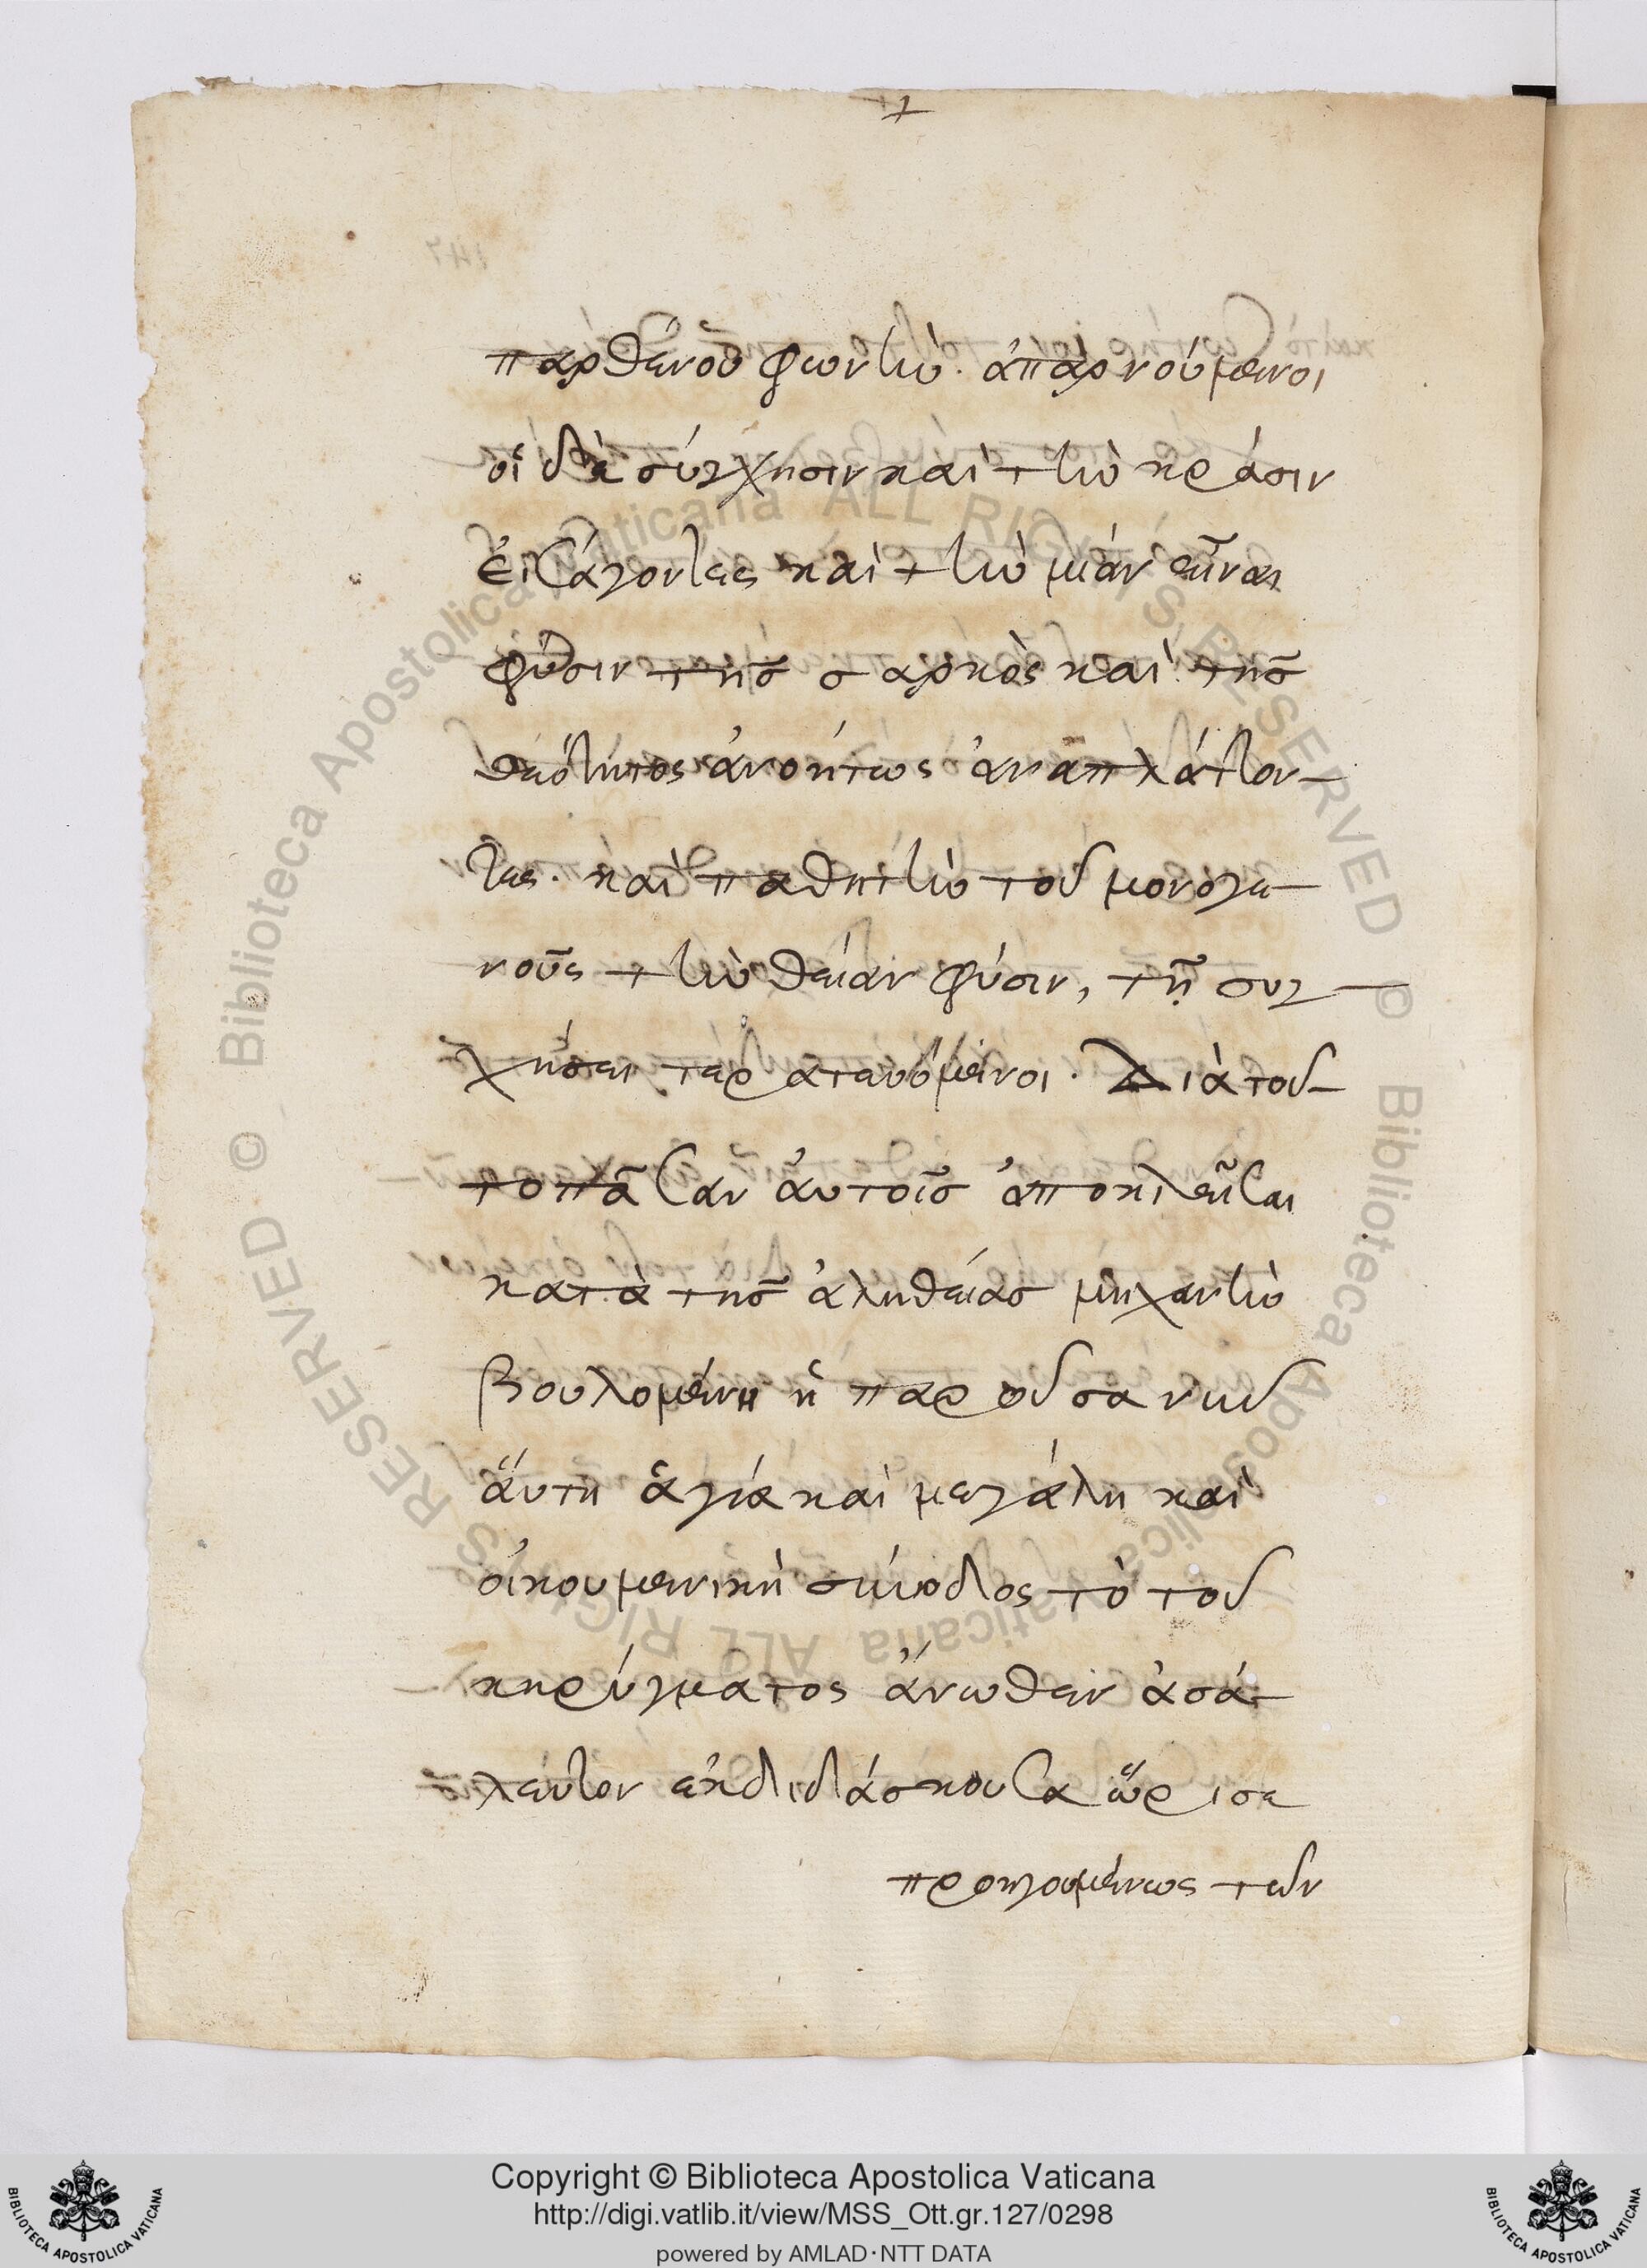 παρθένου φωνὴν. ἀπαρνούμενοι
οἱ δὲ σύγχησιν καὶ τὴν κράσιν
εἰσάγοντες καὶ τὴν μίαν εἶναι
φύσιν τῆς σαρκὸς καὶ τῆς
θεότητος ἀνοήτως ἀναπλάττον-
τες. καὶ παθητὴν τοῦ μονογε-
νοῦς τὴν θείαν φύσιν, τῇ συγ-
χήσει τερατευόμενοι. Διὰ τοῦ-
το πᾶσαν αὐτοῖς ἀποκλεῖσαι
κατὰ τῆς ἀληθείας μηχανὴν
βουλομένη ἡ παροῦσα νῦν
αὕτη ἁγία καὶ μεγάλη καὶ
οἰκουμενικὴ σύνοδος τὸ τοῦ
κηρύγματος ἄνωθεν ἀσά-
λευτον ἐκδιδάσκουσα ὥρισε
προηγουμένως τῶν
147
Biblioteca Apostolica Vaticana ALL RIGHTS RESERVED © Biblioteca Apostolica Vaticana ALL RIGHTS RESERVED ©
Copyright © Biblioteca Apostolica Vaticana
http://digi.vatlib.it/view/MSS_Ott.gr.127/0298
powered by AMLAD·NTT DATA
BIBLIOTECA APOSTOLICA VATICANA
BIBLIOTECA APOSTOLICA VATICANA